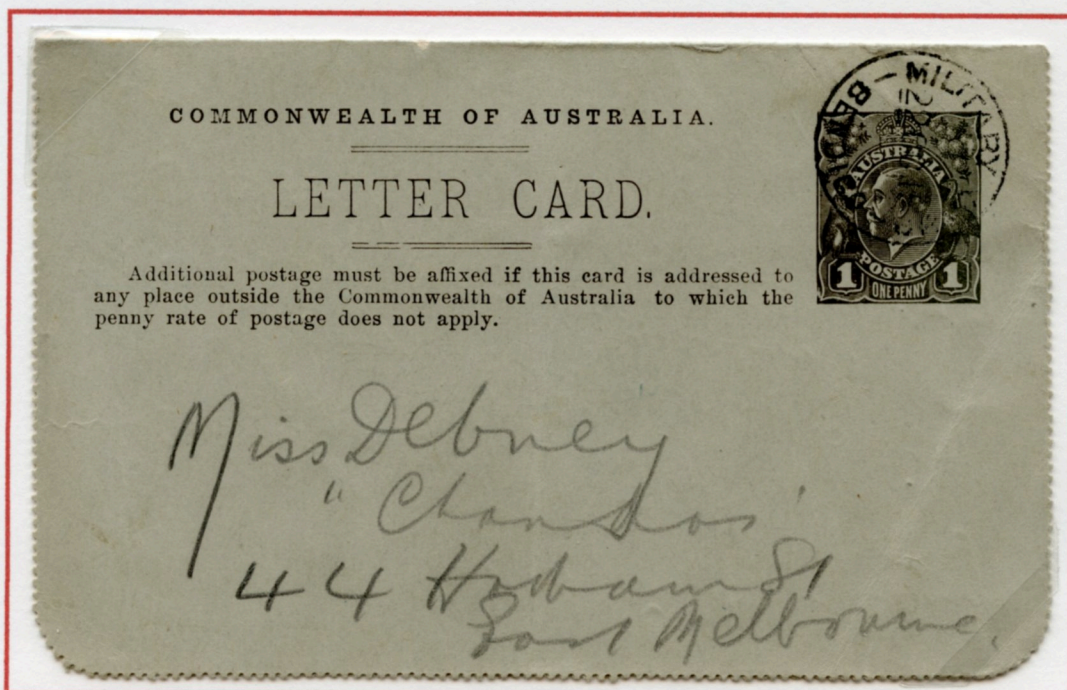 COMMONWEALTH OF AUSTRALIA.
LETTER CARD.
Additional postage must be affixed if this card is addressed to
any place outside the Commonwealth of Australia to which the
penny rate of postage does not apply.
MILITARY
AUSTRALIA
POSTAGE
1 ONE PENNY 1
Miss Debney
"Chandos'
44 Hotham St
East Melbourne.